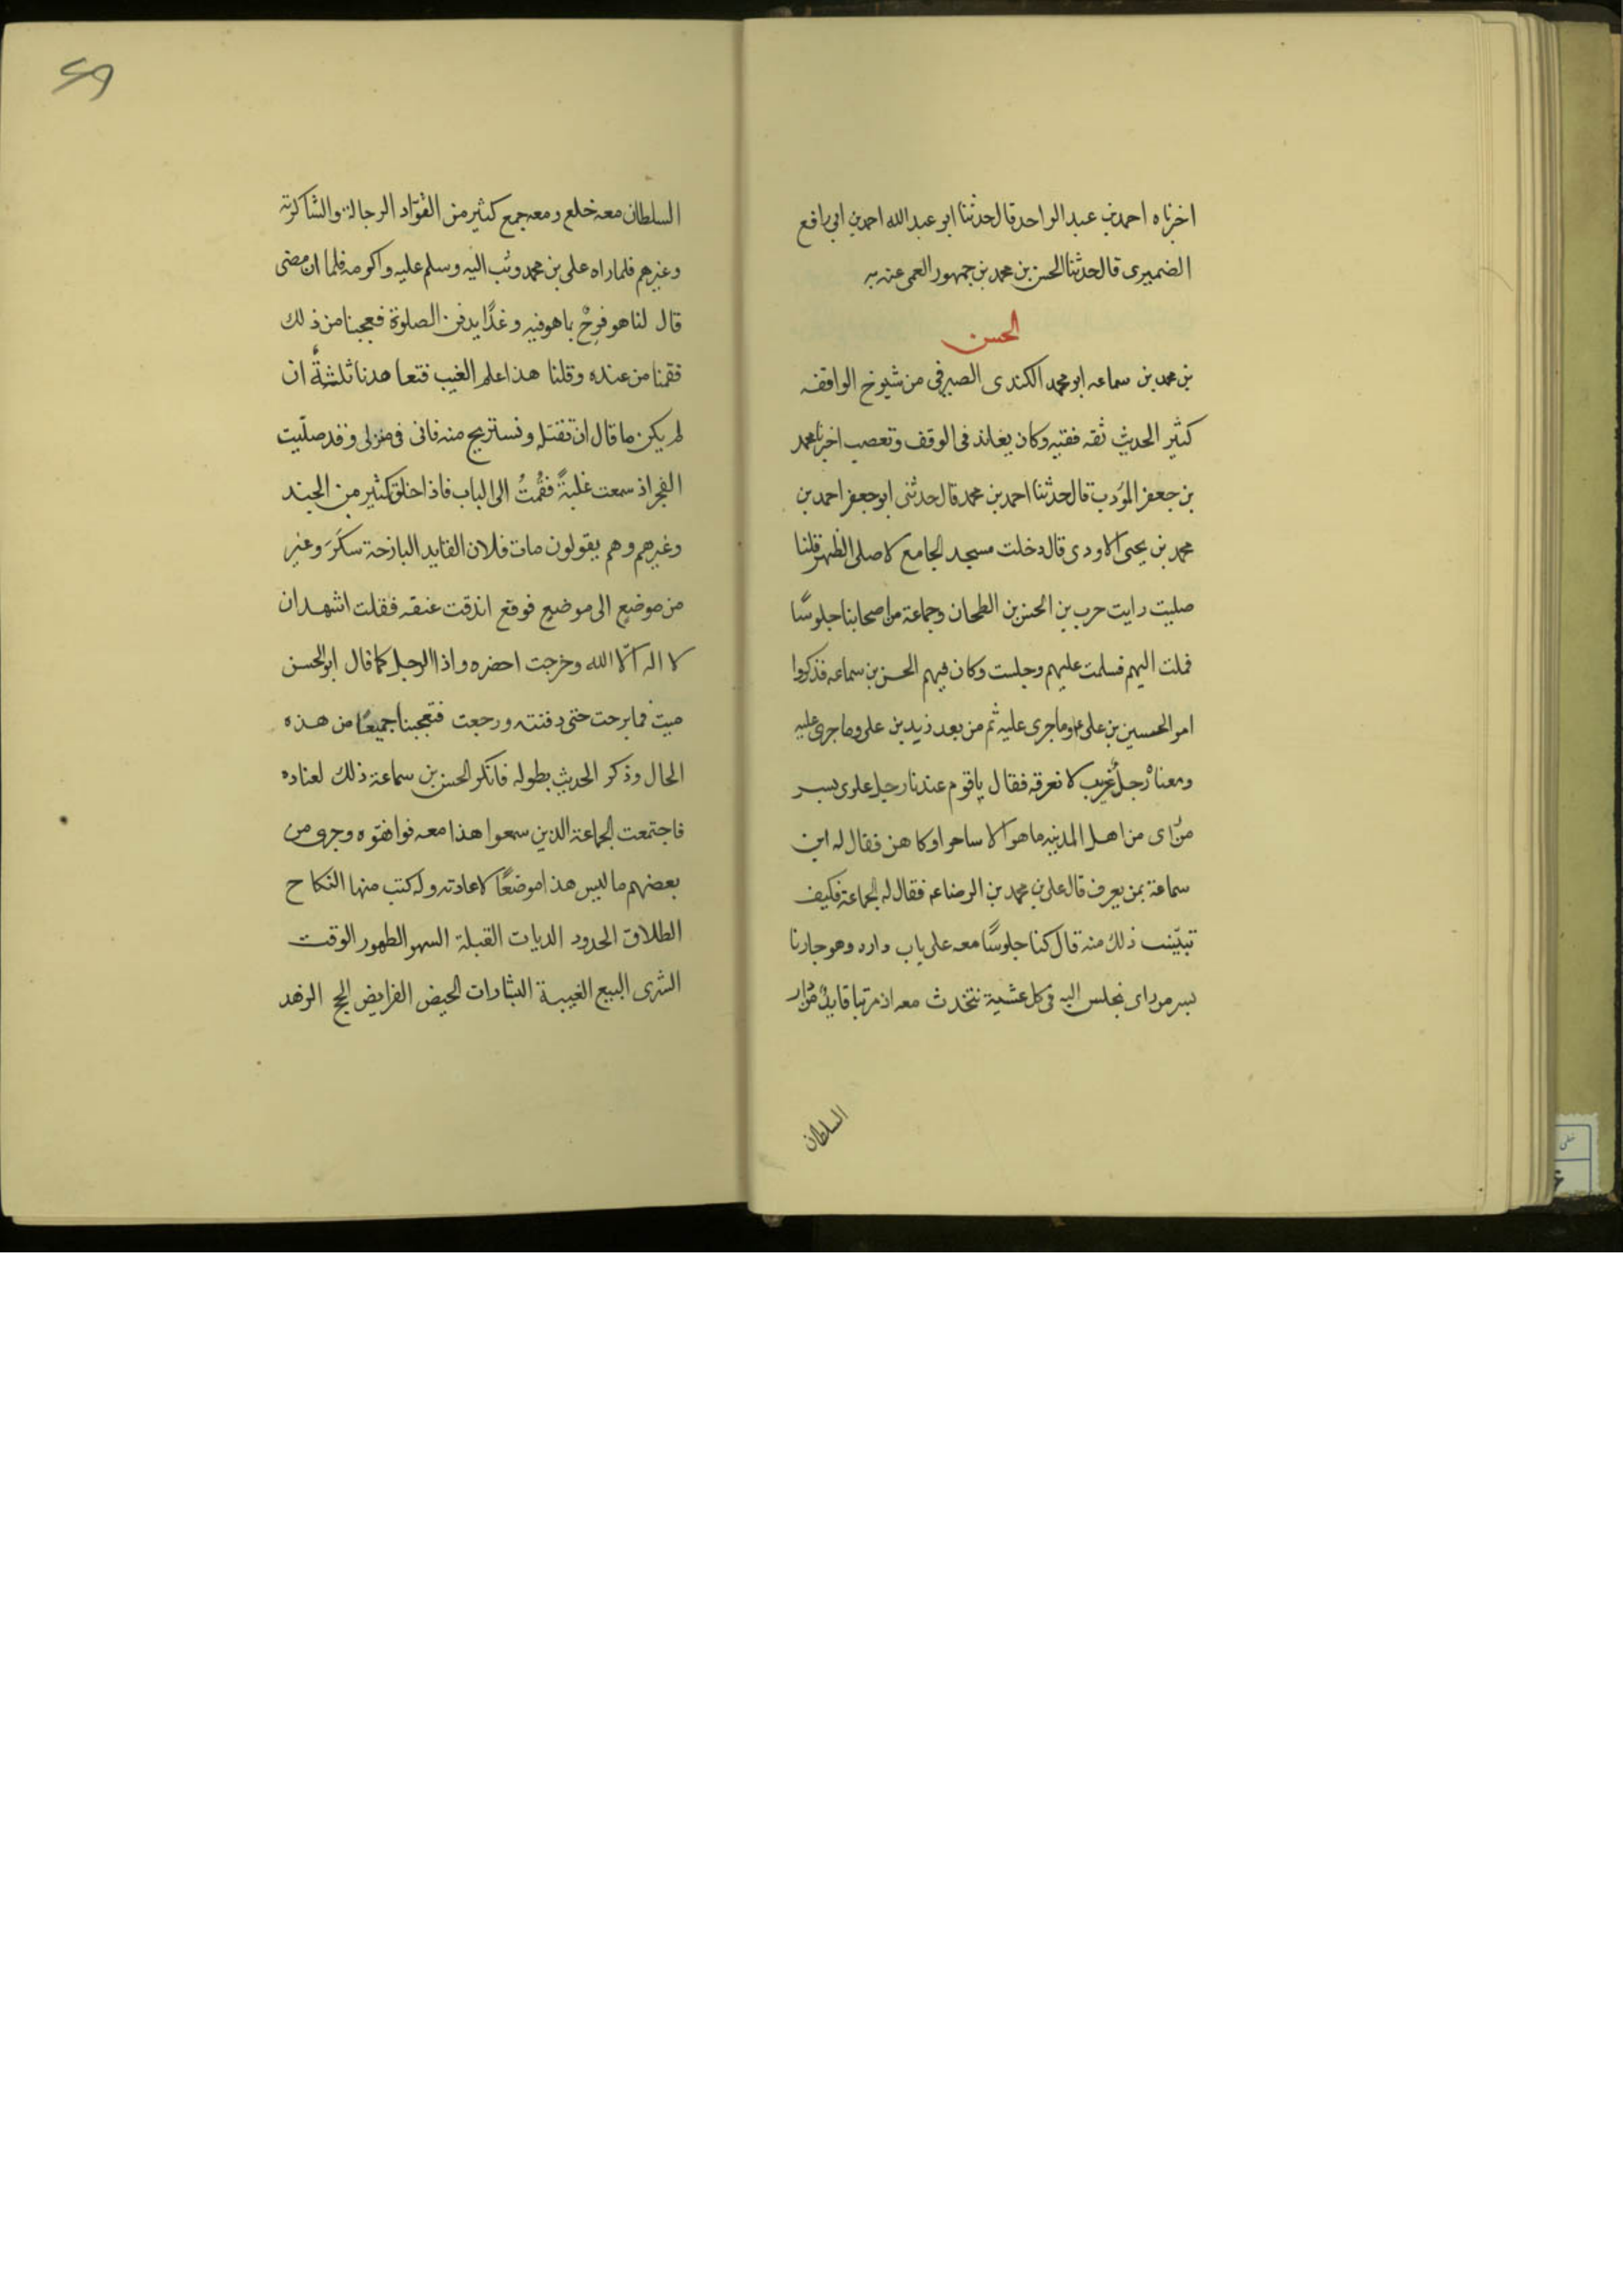 اخبرناه احمد بن عبد الواحد قال حدثنا ابو عبد الله احمد بن ابى رافع
الضميرى قال حدثنا الحسن بن محمد بن جمهور العمى عنه به
الحسن
بن محمد بن سماعه ابو محمد الكندى الصيرفى من شيوخ الواقفه
كثير الحديث ثقه فقيه وكان يعاند فى الوقف وتعصب اخبرنا محمد
بن جعفر المؤدب قال حدثنا احمد بن محمد قال حدثنى ابو جعفر احمد بن
محمد بن يحيى الاودى قال دخلت مسجد الجامع لاصلى الظهر فلنا
صليت رايت حرب بن الحسن بن الطحان وجماعة من اصحابنا جلوسًا
فملت اليهم فسلمت عليهم وجلست وكان فيهم الحسن بن سماعه فذكروا
امر الحسين بن على ع وما جرى عليه ثم من بعد زيد بن على وما جرى عليه
ومعنا رجلٌ غريب لا نعرفه فقال ياقوم عندنا رجل علوى بسر
من راى من اهل المدينه ما هو الا ساحر او كاهن فقال له ابن
سماعة بمن يعرف قال على بن محمد بن الرضا عم فقال له الجماعة فكيف
تبيّنت ذلك منه قال كنا جلوسًا معه على باب داره وهو جارنا
بسر من راى نجلس اليه فى كل عشية نتحدث معه اذ مر بنا قايد من دار
السلطان
السلطان معه خلع ومعه جمع كثير من القوّاد الرجالة والشاكرية
وغيرهم فلما راه على بن محمد وثب اليه وسلم عليه واكرمه فلما ان مضى
قال لنا هو فرحٌ بما هو فيه وغدًا يدفن الصلوة فعجبنا من ذلك
فقمنا من عنده وقلنا هذا علم الغيب فتعاهدنا ثلثةٌ ان
لم يكن ما قال ان نقتله ونستريح منه فانى فى منزلى وقد صلّيت
الفجر اذ سمعت غلبةً فقُمتُ الى الباب فاذا خلق كثير من الجند
وغيرهم وهم يقولون مات فلان القايد البارحة سكر وعبر
من موضعٍ الى موضعٍ فوقع اندقت عنقه فقلت اشهد ان
لا اله الّا الله وخرجت احضره واذا الرجل كما قال ابو الحسن
ميت فما برحت حتى دفنته ورجعت فتعجبنا جميعًا من هذه
الحال وذكر الحديث بطوله فانكر الحسن بن سماعة ذلك لعناده
فاجتمعت الجماعة الذين سمعوا هذا معه فوافقوه وجرى من
بعضهم ما ليس هذا موضعًا لاعادته وله كتب منها النكاح
الطلاق الحدود الديات القبلة السهو الطهور الوقت
الشرى البيع الغيبة البشارات الحيض الفرايض الحج الزهد